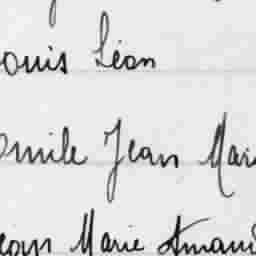 ouis Léon
mile Jean Mari
ean Marie Amand